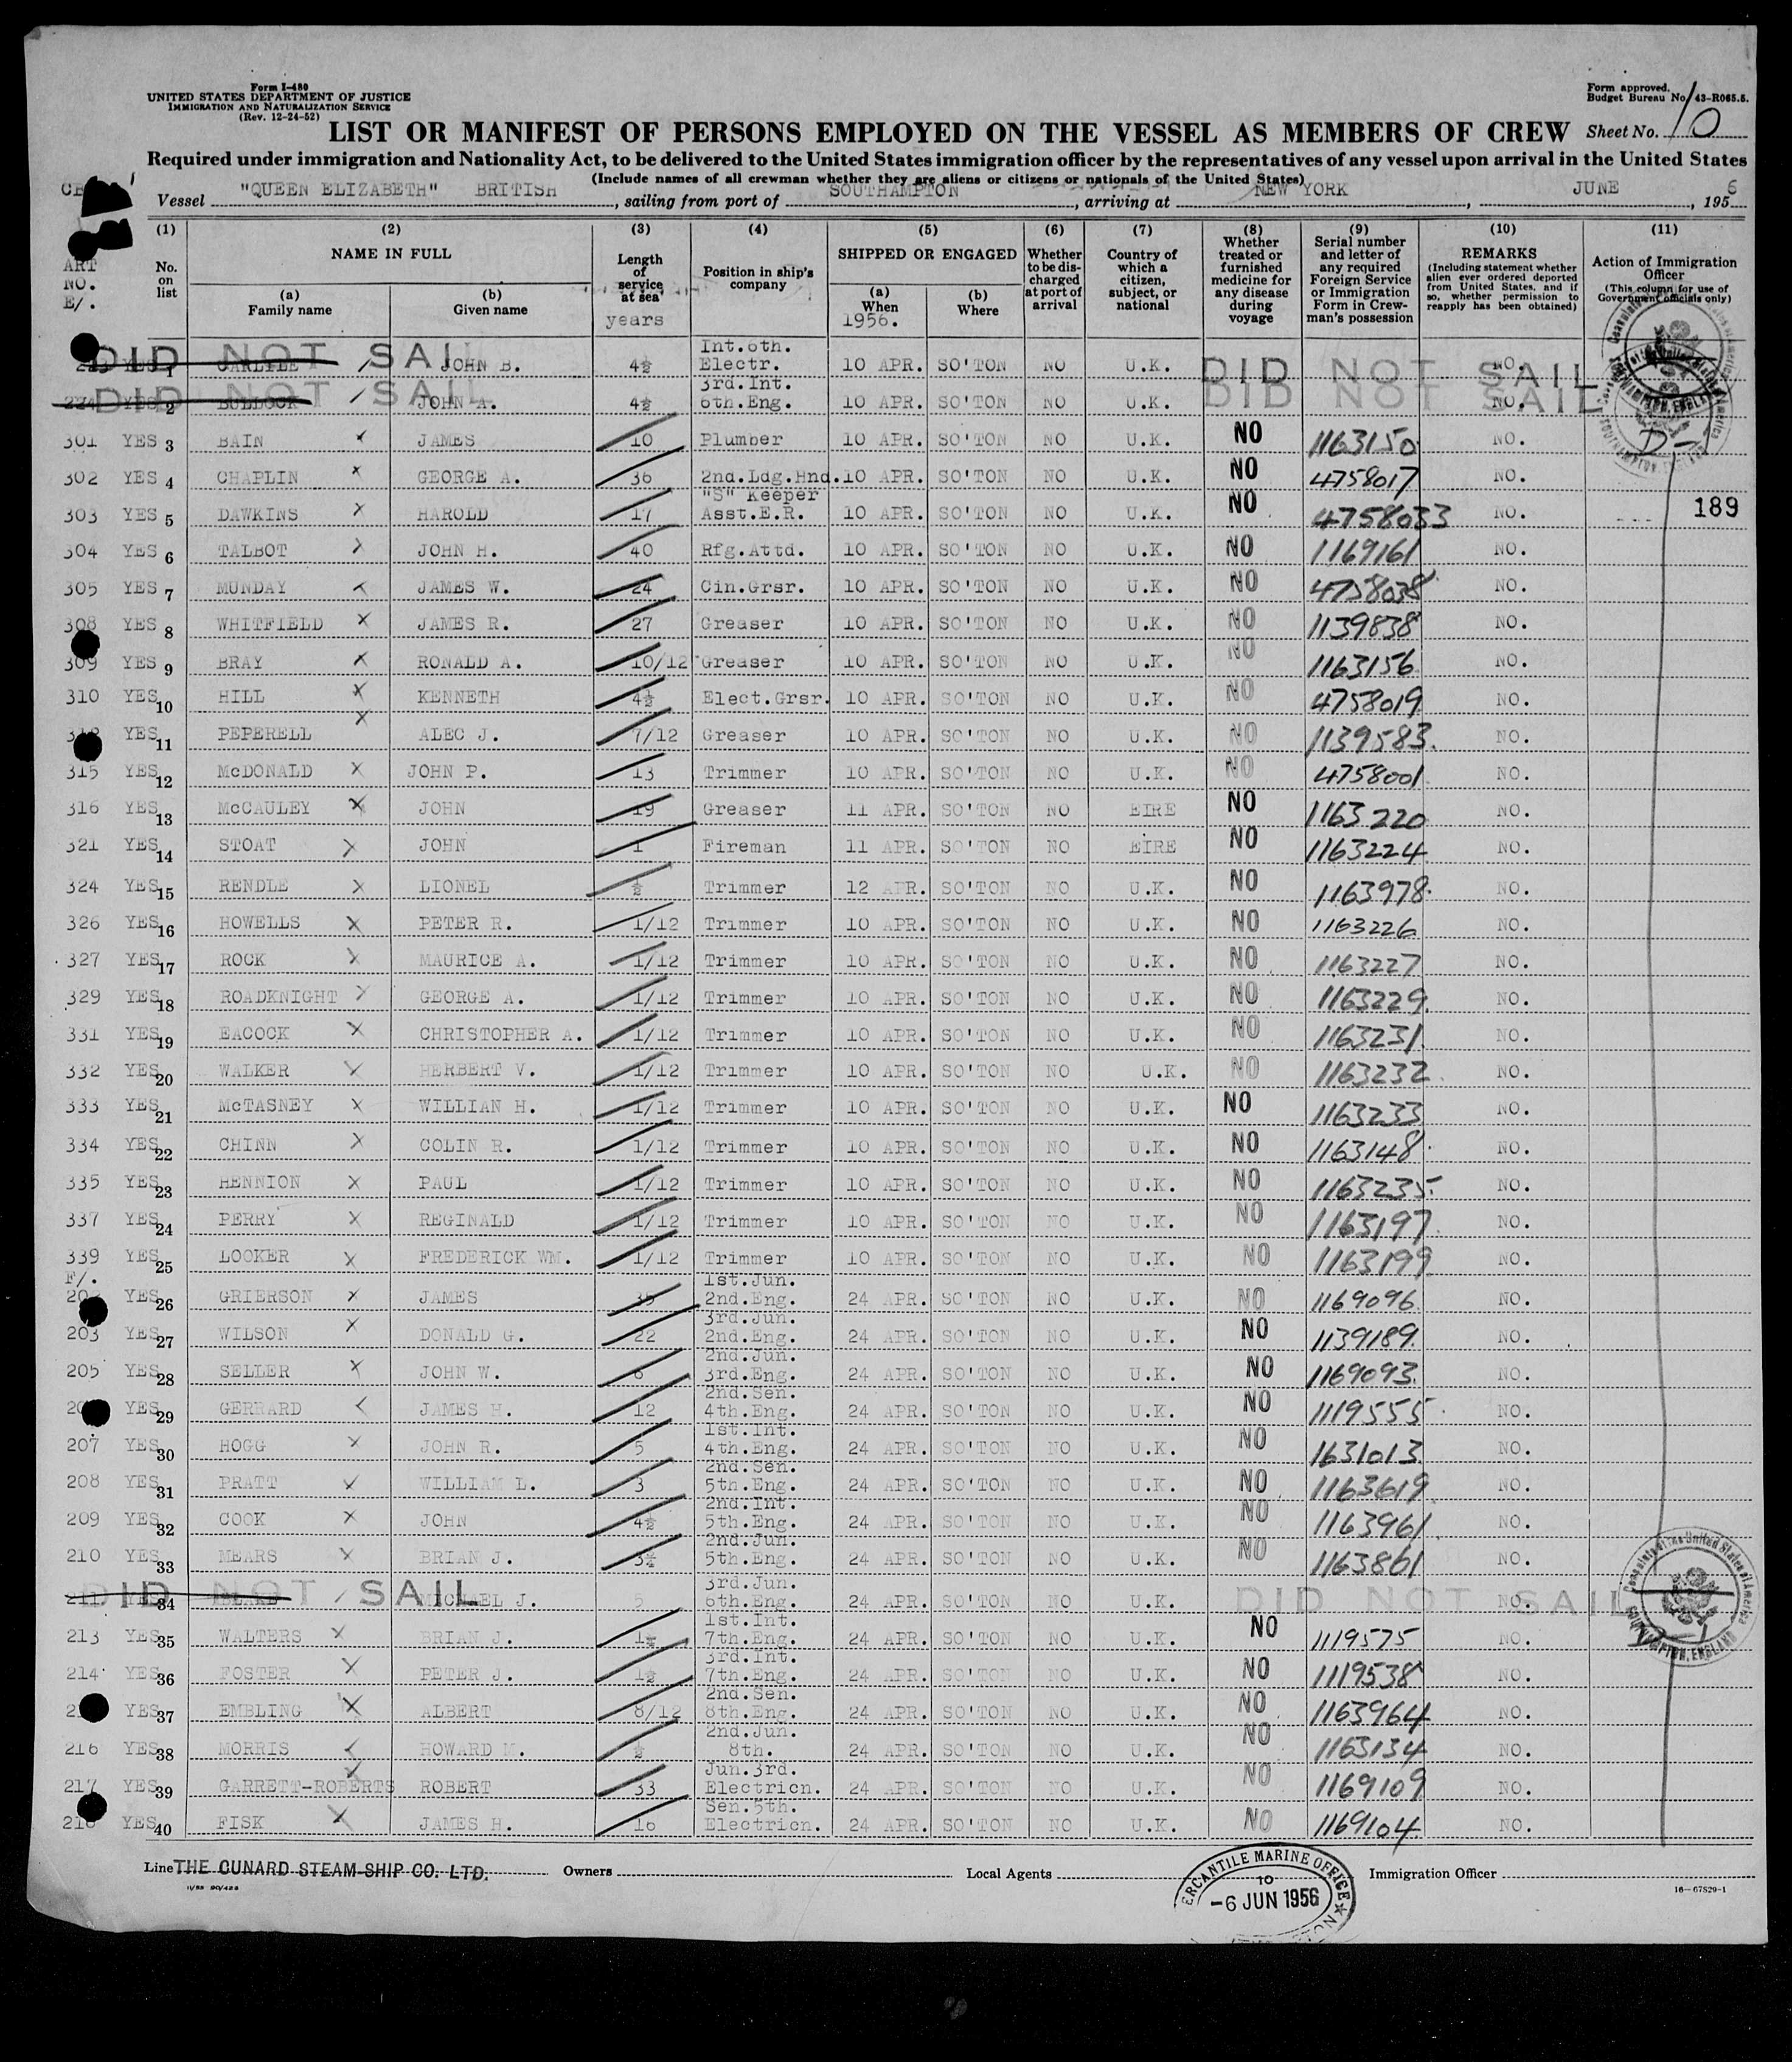 Form I-480
UNITED STATES DEPARTMENT OF JUSTICE
IMMIGRATION AND NATURALIZATION SERVICE
(Rev. 12-24-52)
Form approved.
Budget Bureau No. 43-R065.5.
LIST OR MANIFEST OF PERSONS EMPLOYED ON THE VESSEL AS MEMBERS OF CREW Sheet No. 10
Required under immigration and Nationality Act, to be delivered to the United States immigration officer by the representatives of any vessel upon arrival in the United States
(Include names of all crewman whether they are aliens or citizens or nationals of the United States)
Vessel "QUEEN ELIZABETH" BRITISH, sailing from port of SOUTHAMPTON, arriving at NEW YORK, JUNE, 1956
ART NO. E/.
(1) No. on list
(2) NAME IN FULL (a) Family name (b) Given name
(3) Length of service at sea years
(4) Position in ship's company
(5) SHIPPED OR ENGAGED (a) When 1956. (b) Where
(6) Whether to be discharged at port of arrival
(7) Country of which a citizen, subject, or national
(8) Whether treated or furnished medicine for any disease during voyage
(9) Serial number and letter of any required Foreign Service or Immigration Form in Crewman's possession
(10) REMARKS (Including statement whether alien ever ordered deported from United States, and if so, whether permission to reapply has been obtained)
(11) Action of Immigration Officer (This column for use of Government officials only)
DID NOT SAIL 1 CARLILE JOHN B. 4½ Int.6th. Electr. 10 APR. SO'TON NO U.K. DID NOT SAIL NO.
224 DID NOT SAIL 2 BULLOCK JOHN A. 4½ 3rd.Int. 6th.Eng. 10 APR. SO'TON NO U.K. DID NOT SAIL NO.
301 YES 3 BAIN JAMES 10 Plumber 10 APR. SO'TON NO U.K. NO 1163150 NO. D-1
302 YES 4 CHAPLIN GEORGE A. 36 2nd.Ldg.Hnd. 10 APR. SO'TON NO U.K. NO 4758017 NO.
303 YES 5 DAWKINS HAROLD 17 "S" Keeper Asst.E.R. 10 APR. SO'TON NO U.K. NO 4758033 NO. 189
304 YES 6 TALBOT JOHN H. 40 Rfg.Attd. 10 APR. SO'TON NO U.K. NO 1169161 NO.
305 YES 7 MUNDAY JAMES W. 24 Cin.Grsr. 10 APR. SO'TON NO U.K. NO 4758038 NO.
308 YES 8 WHITFIELD JAMES R. 27 Greaser 10 APR. SO'TON NO U.K. NO 1139838 NO.
309 YES 9 BRAY RONALD A. 10/12 Greaser 10 APR. SO'TON NO U.K. NO 1163156 NO.
310 YES 10 HILL KENNETH 4½ Elect.Grsr. 10 APR. SO'TON NO U.K. NO 4758019 NO.
YES 11 PEPERELL ALEC J. 7/12 Greaser 10 APR. SO'TON NO U.K. NO 1139583. NO.
315 YES 12 McDONALD JOHN P. 13 Trimmer 10 APR. SO'TON NO U.K. NO 4758001 NO.
316 YES 13 McCAULEY JOHN 19 Greaser 11 APR. SO'TON NO EIRE NO 1163220 NO.
321 YES 14 STOAT JOHN 1 Fireman 11 APR. SO'TON NO EIRE NO 1163224 NO.
324 YES 15 RENDLE LIONEL ½ Trimmer 12 APR. SO'TON NO U.K. NO 1163978. NO.
326 YES 16 HOWELLS PETER R. 1/12 Trimmer 10 APR. SO'TON NO U.K. NO 1163226 NO.
327 YES 17 ROCK MAURICE A. 1/12 Trimmer 10 APR. SO'TON NO U.K. NO 1163227 NO.
329 YES 18 ROADKNIGHT GEORGE A. 1/12 Trimmer 10 APR. SO'TON NO U.K. NO 1163229. NO.
331 YES 19 EACOCK CHRISTOPHER A. 1/12 Trimmer 10 APR. SO'TON NO U.K. NO 1163231. NO.
332 YES 20 WALKER HERBERT V. 1/12 Trimmer 10 APR. SO'TON NO U.K. NO 1163232 NO.
333 YES 21 McTASNEY WILLIAN H. 1/12 Trimmer 10 APR. SO'TON NO U.K. NO 1163233 NO.
334 YES 22 CHINN COLIN R. 1/12 Trimmer 10 APR. SO'TON NO U.K. NO 1163148. NO.
335 YES 23 HENNION PAUL 1/12 Trimmer 10 APR. SO'TON NO U.K. NO 1163235. NO.
337 YES 24 PERRY REGINALD 1/12 Trimmer 10 APR. SO'TON NO U.K. NO 1163197. NO.
339 YES 25 LOOKER FREDERICK WM. 1/12 Trimmer 10 APR. SO'TON NO U.K. NO 1163199 NO.
F/.
YES 26 GRIERSON JAMES 1st.Jun. 2nd.Eng. 24 APR. SO'TON NO U.K. NO 1169096 NO.
203 YES 27 WILSON DONALD G. 22 3rd.Jun. 2nd.Eng. 24 APR. SO'TON NO U.K. NO 1139189. NO.
205 YES 28 SELLER JOHN W. 2nd.Jun. 3rd.Eng. 24 APR. SO'TON NO U.K. NO 1169093. NO.
YES 29 GERRARD JAMES H. 12 2nd.Sen. 4th.Eng. 24 APR. SO'TON NO U.K. NO 1119555. NO.
207 YES 30 HOGG JOHN R. 5 1st.Int. 4th.Eng. 24 APR. SO'TON NO U.K. NO 1631013. NO.
208 YES 31 PRATT WILLIAM L. 3 2nd.Sen. 5th.Eng. 24 APR. SO'TON NO U.K. NO 1163619. NO.
209 YES 32 COOK JOHN 4½ 2nd.Int. 5th.Eng. 24 APR. SO'TON NO U.K. NO 1163961. NO.
210 YES 33 MEARS BRIAN J. 2nd.Jun. 5th.Eng. 24 APR. SO'TON NO U.K. NO 1163861 NO.
211 DID NOT SAIL 34 MICHAEL J. 5 3rd.Jun. 6th.Eng. 24 APR. SO'TON NO U.K. DID NOT SAIL NO.
213 YES 35 WALTERS BRIAN J. 1st.Int. 7th.Eng. 24 APR. SO'TON NO U.K. NO 1119575 NO. D-1
214 YES 36 FOSTER PETER J. 1½ 3rd.Int. 7th.Eng. 24 APR. SO'TON NO U.K. NO 1119538 NO.
YES 37 EMBLING ALBERT 8/12 2nd.Sen. 8th.Eng. 24 APR. SO'TON NO U.K. NO 1163964 NO.
216 YES 38 MORRIS HOWARD M. ½ 2nd.Jun. 8th. 24 APR. SO'TON NO U.K. NO 1163134 NO.
217 YES 39 GARRETT-ROBERTS ROBERT 33 Jun.3rd. Electricn. 24 APR. SO'TON NO U.K. NO 1169109 NO.
218 YES 40 FISK JAMES H. 16 Sen.5th. Electricn. 24 APR. SO'TON NO U.K. NO 1169104 NO.
Line THE CUNARD STEAM-SHIP CO. LTD. Owners Local Agents Immigration Officer
11/55 90/428
MERCANTILE MARINE OFFICE
10
-6 JUN 1956
16—67829-1